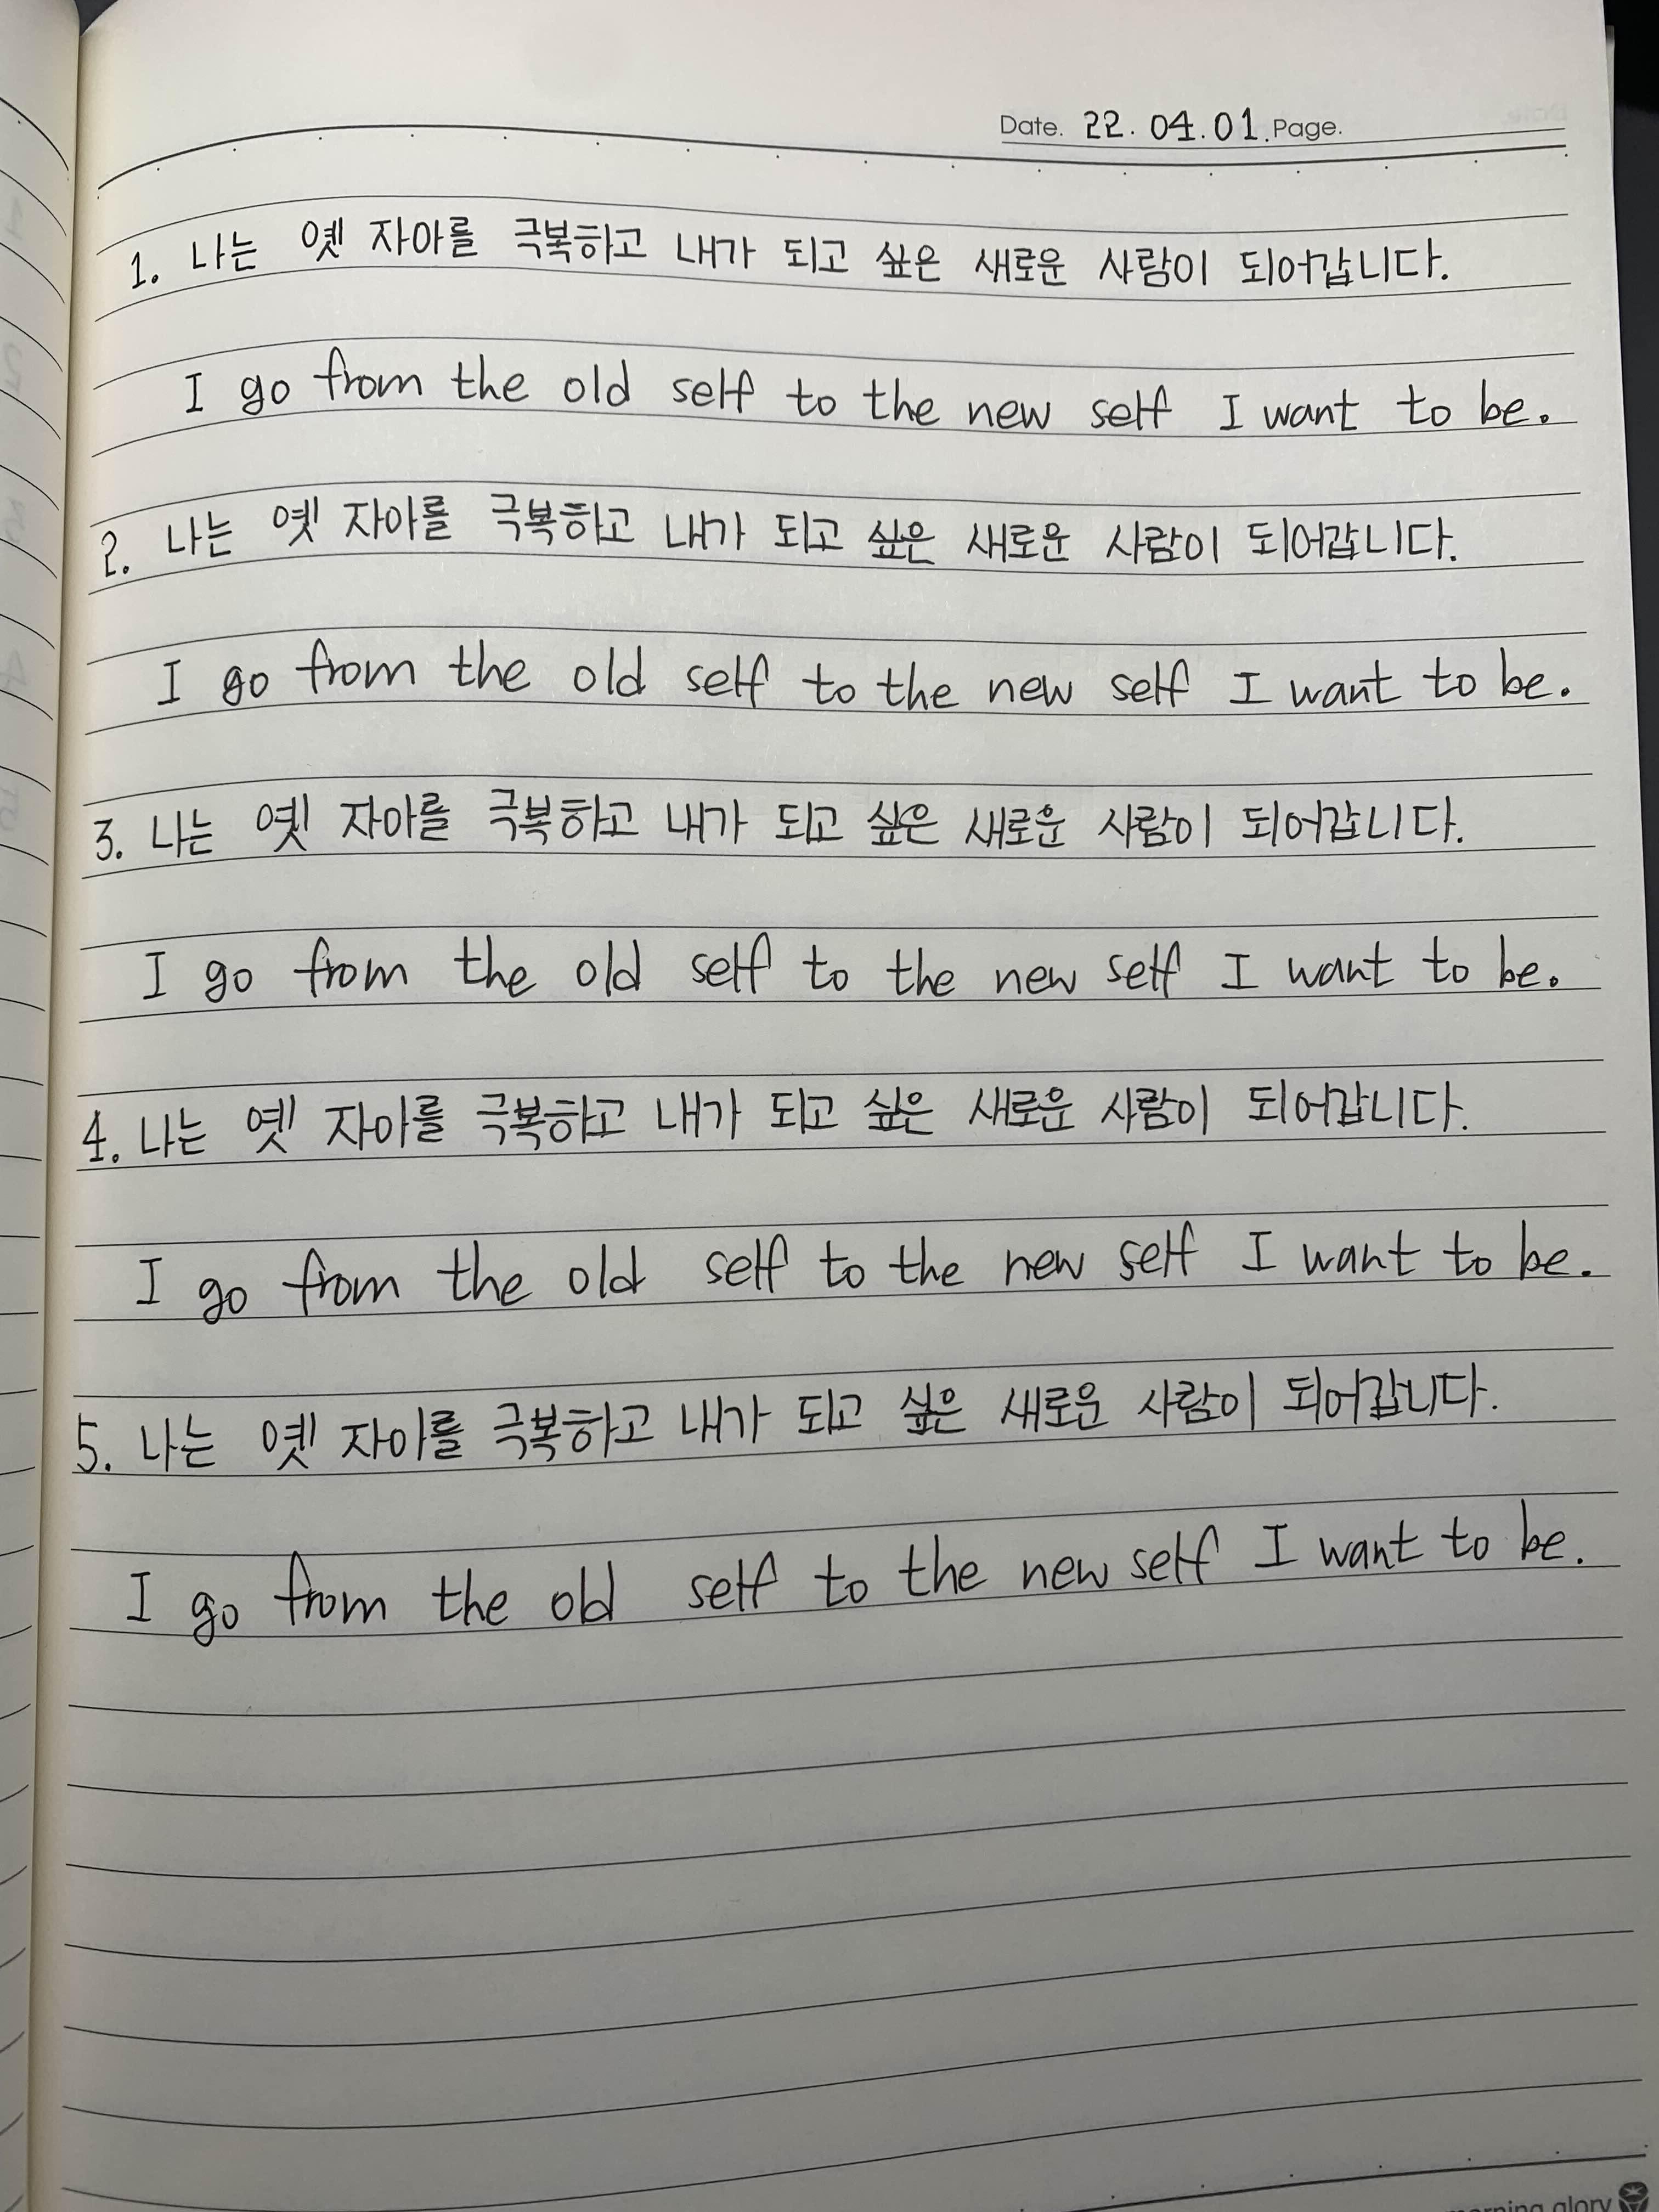 Date. 22. 04. 01. Page.
1. 나는 옛 자아를 극복하고 내가 되고 싶은 새로운 사람이 되어갑니다.
I go from the old self to the new self I want to be.
2. 나는 옛 자아를 극복하고 내가 되고 싶은 새로운 사람이 되어갑니다.
I go from the old self to the new self I want to be.
3. 나는 옛 자아를 극복하고 내가 되고 싶은 새로운 사람이 되어갑니다.
I go from the old self to the new self I want to be.
4. 나는 옛 자아를 극복하고 내가 되고 싶은 새로운 사람이 되어갑니다.
I go from the old self to the new self I want to be.
5. 나는 옛 자아를 극복하고 내가 되고 싶은 새로운 사람이 되어갑니다.
I go from the old self to the new self I want to be.
morning glory